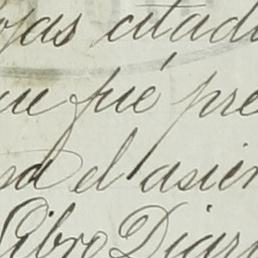 ojas citad
que fué pre
sa el asien
Libro Diari